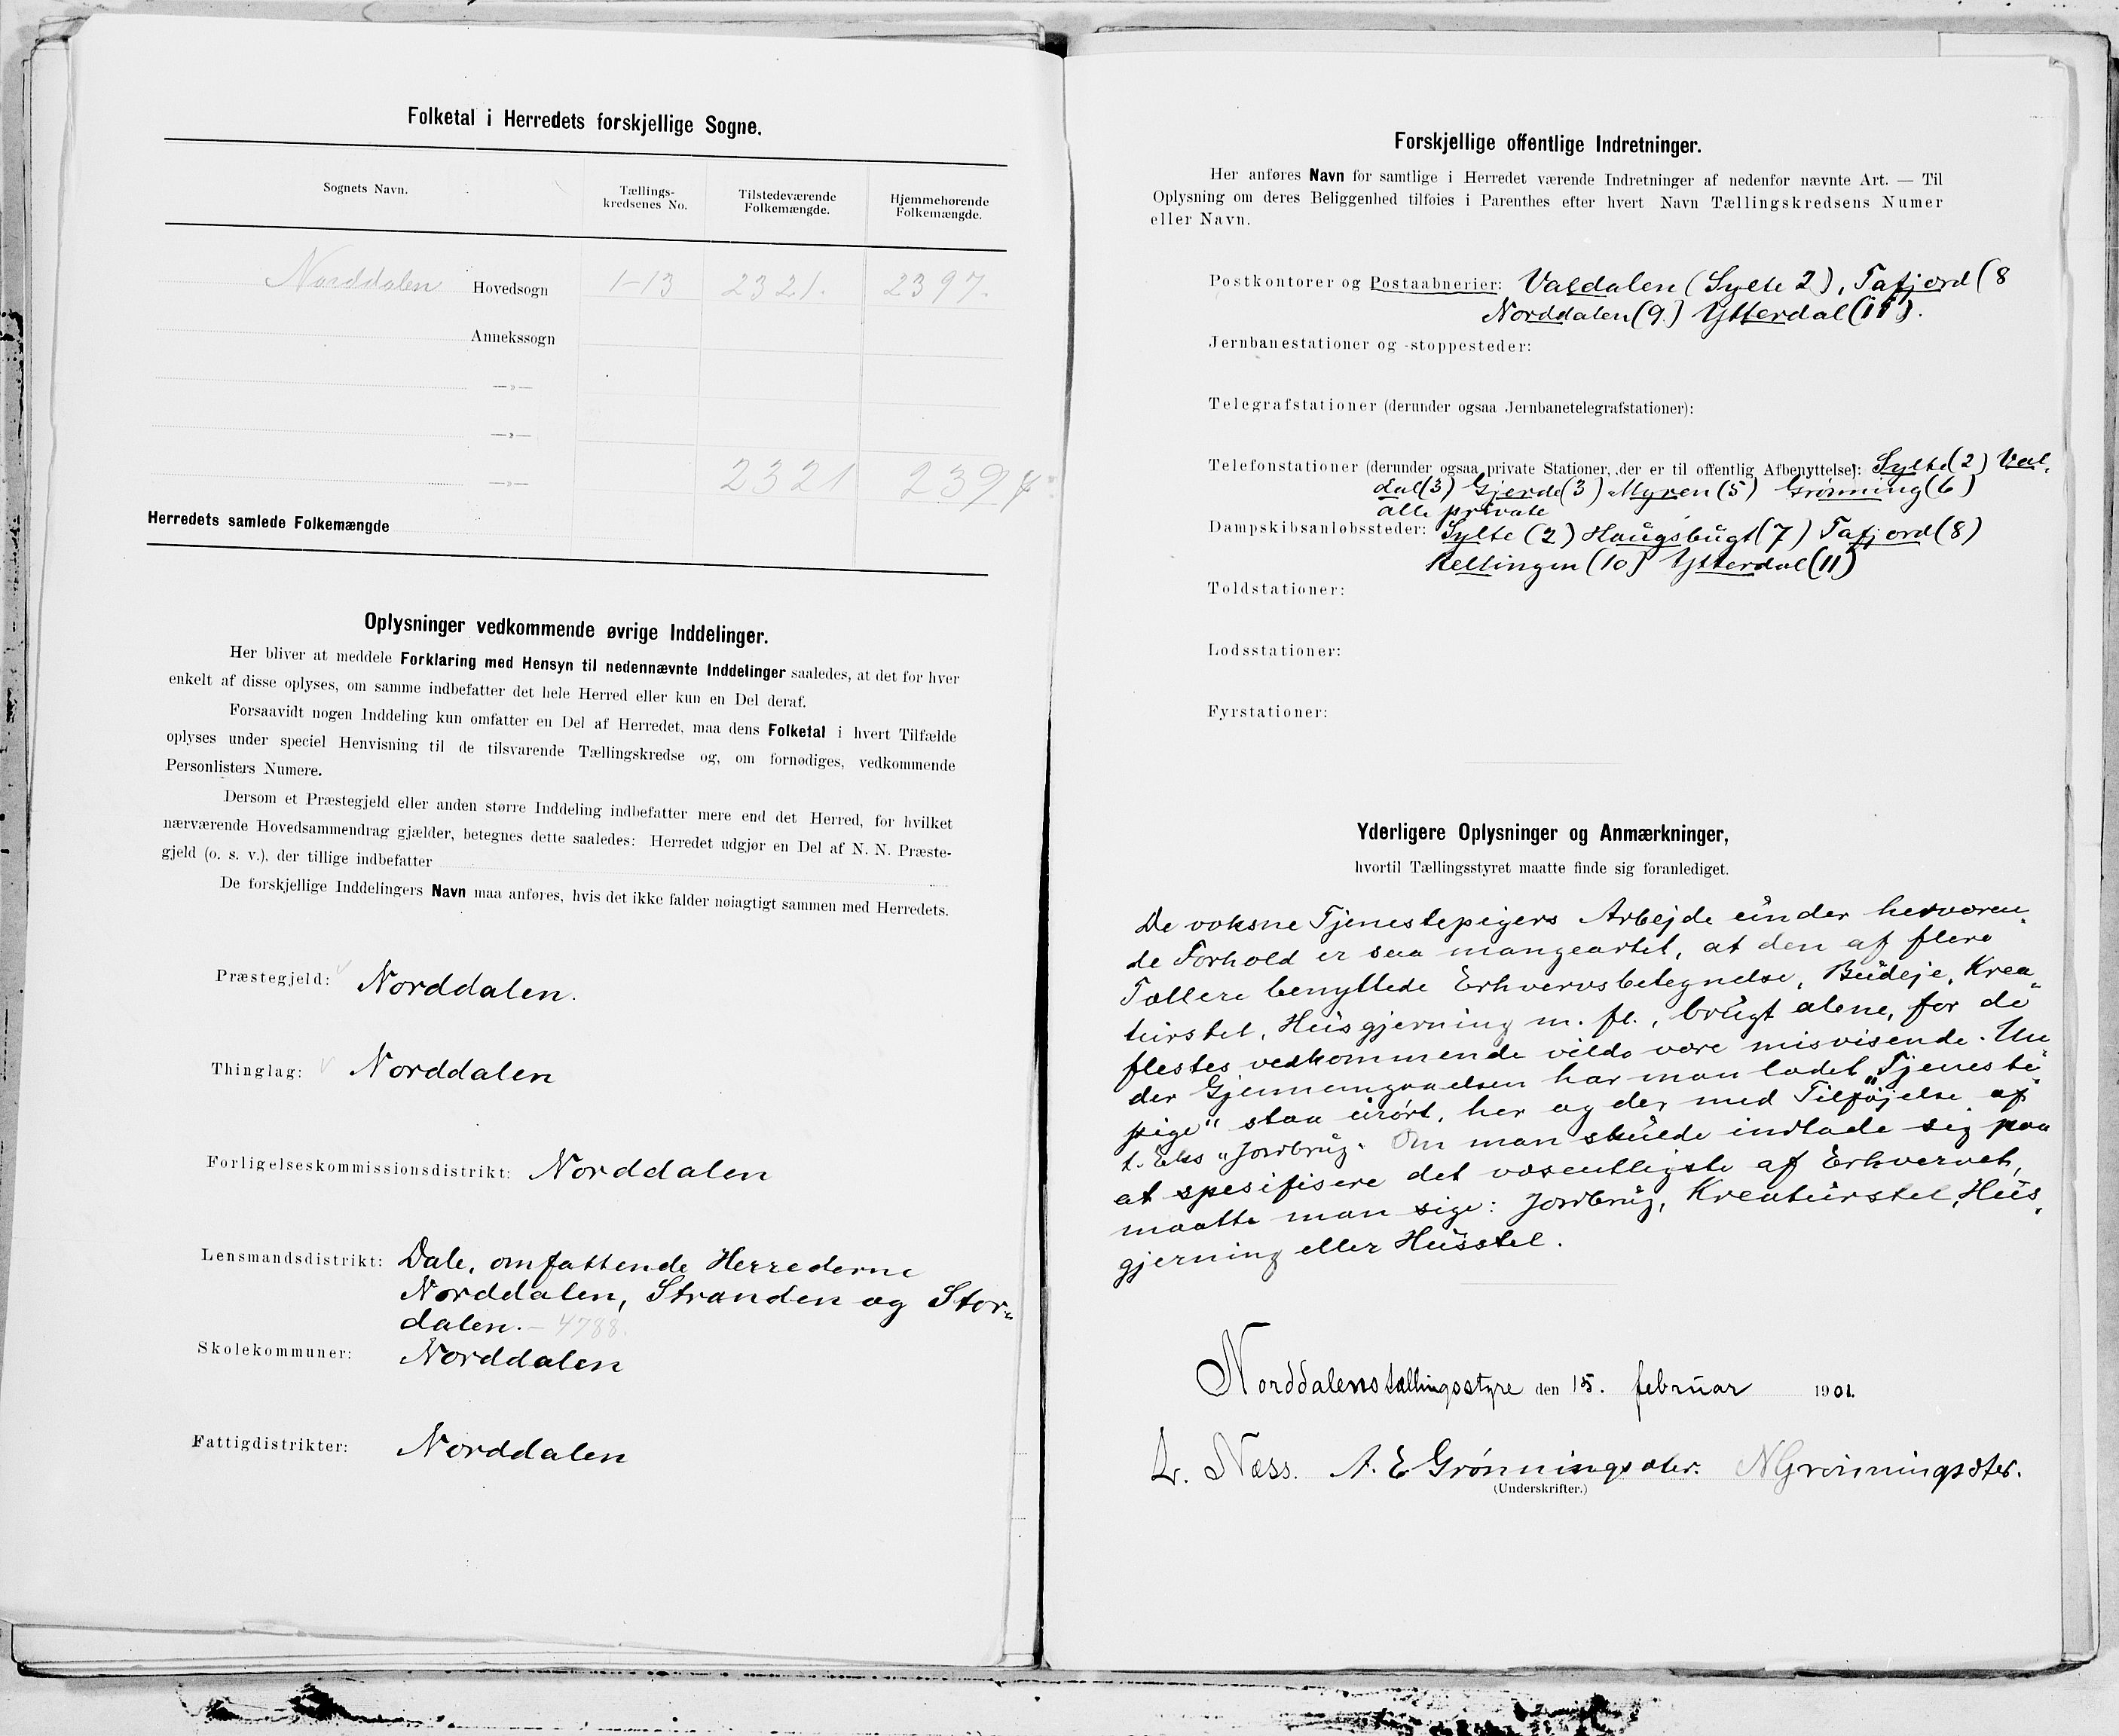 Folketal i Herredets forskjellige Sogne.
Sognets Navn.
Tællings-
kredsenes No.
Tilstedeværende
Folkemængde.
Hjemmehørende
Folkemængde.
Norddalen Hovedsogn 1-13 2321. 2397.
Annekssogn
—„—
—„—
—„— 2321 2397
Herredets samlede Folkemængde
Oplysninger vedkommende øvrige Inddelinger.
Her bliver at meddele Forklaring med Hensyn til nedennævnte Inddelinger saaledes, at det for hver
enkelt af disse oplyses, om samme indbefatter det hele Herred eller kun en Del deraf.
Forsaavidt nogen Inddeling kun omfatter en Del af Herredet, maa dens Folketal i hvert Tilfælde
oplyses under speciel Henvisning til de tilsvarende Tællingskredse og, om fornødiges, vedkommende
Personlisters Numere.
Dersom et Præstegjeld eller anden større Inddeling indbefatter mere end det Herred, for hvilket
nærværende Hovedsammendrag gjælder, betegnes dette saaledes: Herredet udgjør en Del af N. N. Præste-
gjeld (o. s. v.), der tillige indbefatter
De forskjellige Inddelingers Navn maa anføres, hvis det ikke falder nøiagtigt sammen med Herredets.
Præstegjeld: Norddalen.
Thinglag: Norddalen
Forligelseskommissionsdistrikt: Norddalen
Lensmandsdistrikt: Dale, omfattende Herrederne
Norddalen, Stranden og Stor-
dalen. - 4788.
Skolekommuner: Norddalen
Fattigdistrikter: Norddalen
Forskjellige offentlige Indretninger.
Her anføres Navn for samtlige i Herredet værende Indretninger af nedenfor nævnte Art. — Til
Oplysning om deres Beliggenhed tilføies i Parenthes efter hvert Navn Tællingskredsens Numer
eller Navn.
Postkontorer og Postaabnerier: Valdalen (Sylte 2), Tafjord (8
Norddalen (9) Ytterdal (11).
Jernbanestationer og -stoppesteder:
Telegrafstationer (derunder ogsaa Jernbanetelegrafstationer):
Telefonstationer (derunder ogsaa private Stationer, der er til offentlig Afbenyttelse): Sylte (2) Val-
dal (3) Gjerde (3) Myren (5) Grønning (6)
alle private
Dampskibsanløbssteder: Sylte (2) Haugsbugt (7) Tafjord (8)
Rellingen (10) Ytterdal (11)
Toldstationer:
Lodsstationer:
Fyrstationer:
Yderligere Oplysninger og Anmærkninger,
hvortil Tællingsstyret maatte finde sig foranlediget.
De voksne Tjenestepigers Arbejde under herværen-
de Forhold er saa mangeartet, at den af flere
Tællere benyttede Erhvervsbetegnelse, Budeje, Krea-
turstel, Husgjerning m. fl., brugt alene, for de
flestes vedkommende vilde være misvisende. Un-
der Gjennemgaaelsen har man ladet „Tjeneste-
pige" staa urørt, her og der med Tilføjelse af
t. Eks „Jordbrug. Om man skulde indlade sig paa
at spesifisere det væsentligste af Erhvervet,
maatte man sige: Jordbrug, Kreaturstel, Hus-
gjerning eller Husstel.
Norddalens tællingsstyre den 15. februar 1901.
L. Næss. A. E Grønningsæter. N Grønningsæter.
(Underskrifter.)